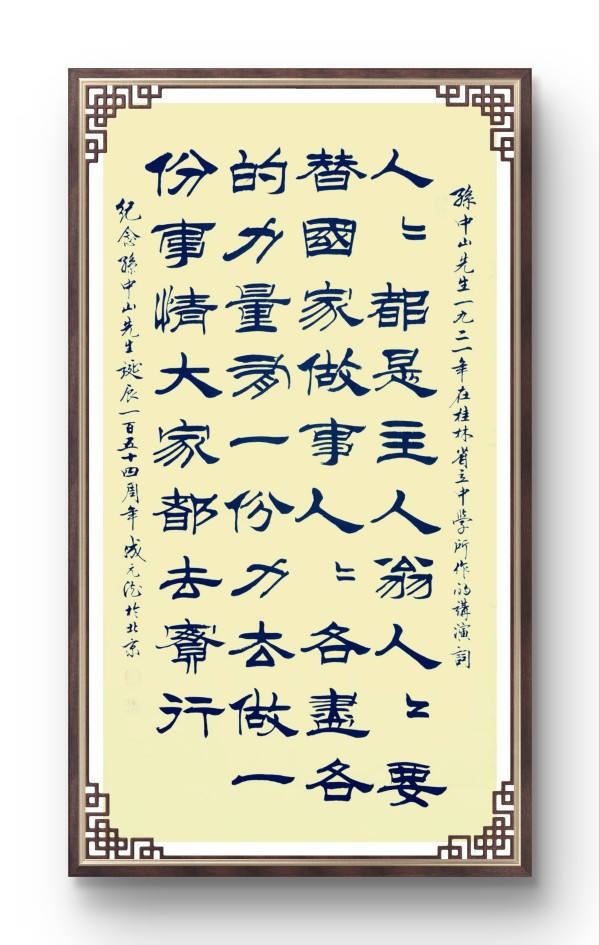 孫中山先生一九二一年在桂林省立中學所作的講演詞
人〻都是主人翁人〻要
替國家做事人〻各盡各
的力量有一份力去做一
份事情大家都去實行
紀念孫中山先生誕辰一百五十四周年成元 於北京